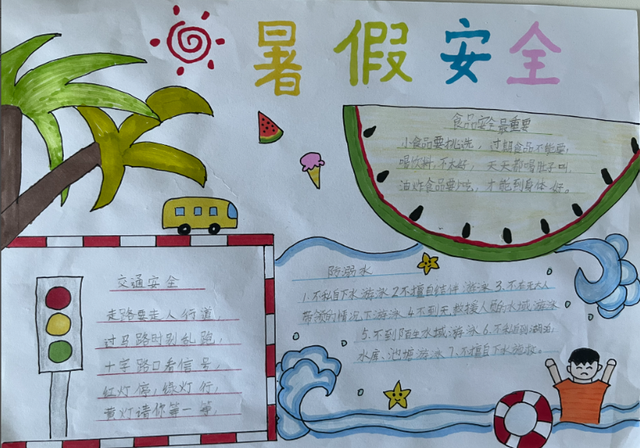 暑假安全
食品安全最重要
小食品要挑选，过期食品不能要，
喝饮料，不太好，天天都喝肚子叫，
油炸食品要少吃，才能到身体好。
交通安全
走路要走人行道，
过马路时别乱跑，
十字路口看信号，
红灯停，绿灯行，
黄灯请你等一等。
防溺水
1.不私自下水游泳 2.不擅自结伴游泳 3.不在无大人
带领的情况下游泳 4.不到无救援人员的水域游泳
5.不到陌生水域游泳 6.不
水库、池塘游泳 7.不擅自下水施救。